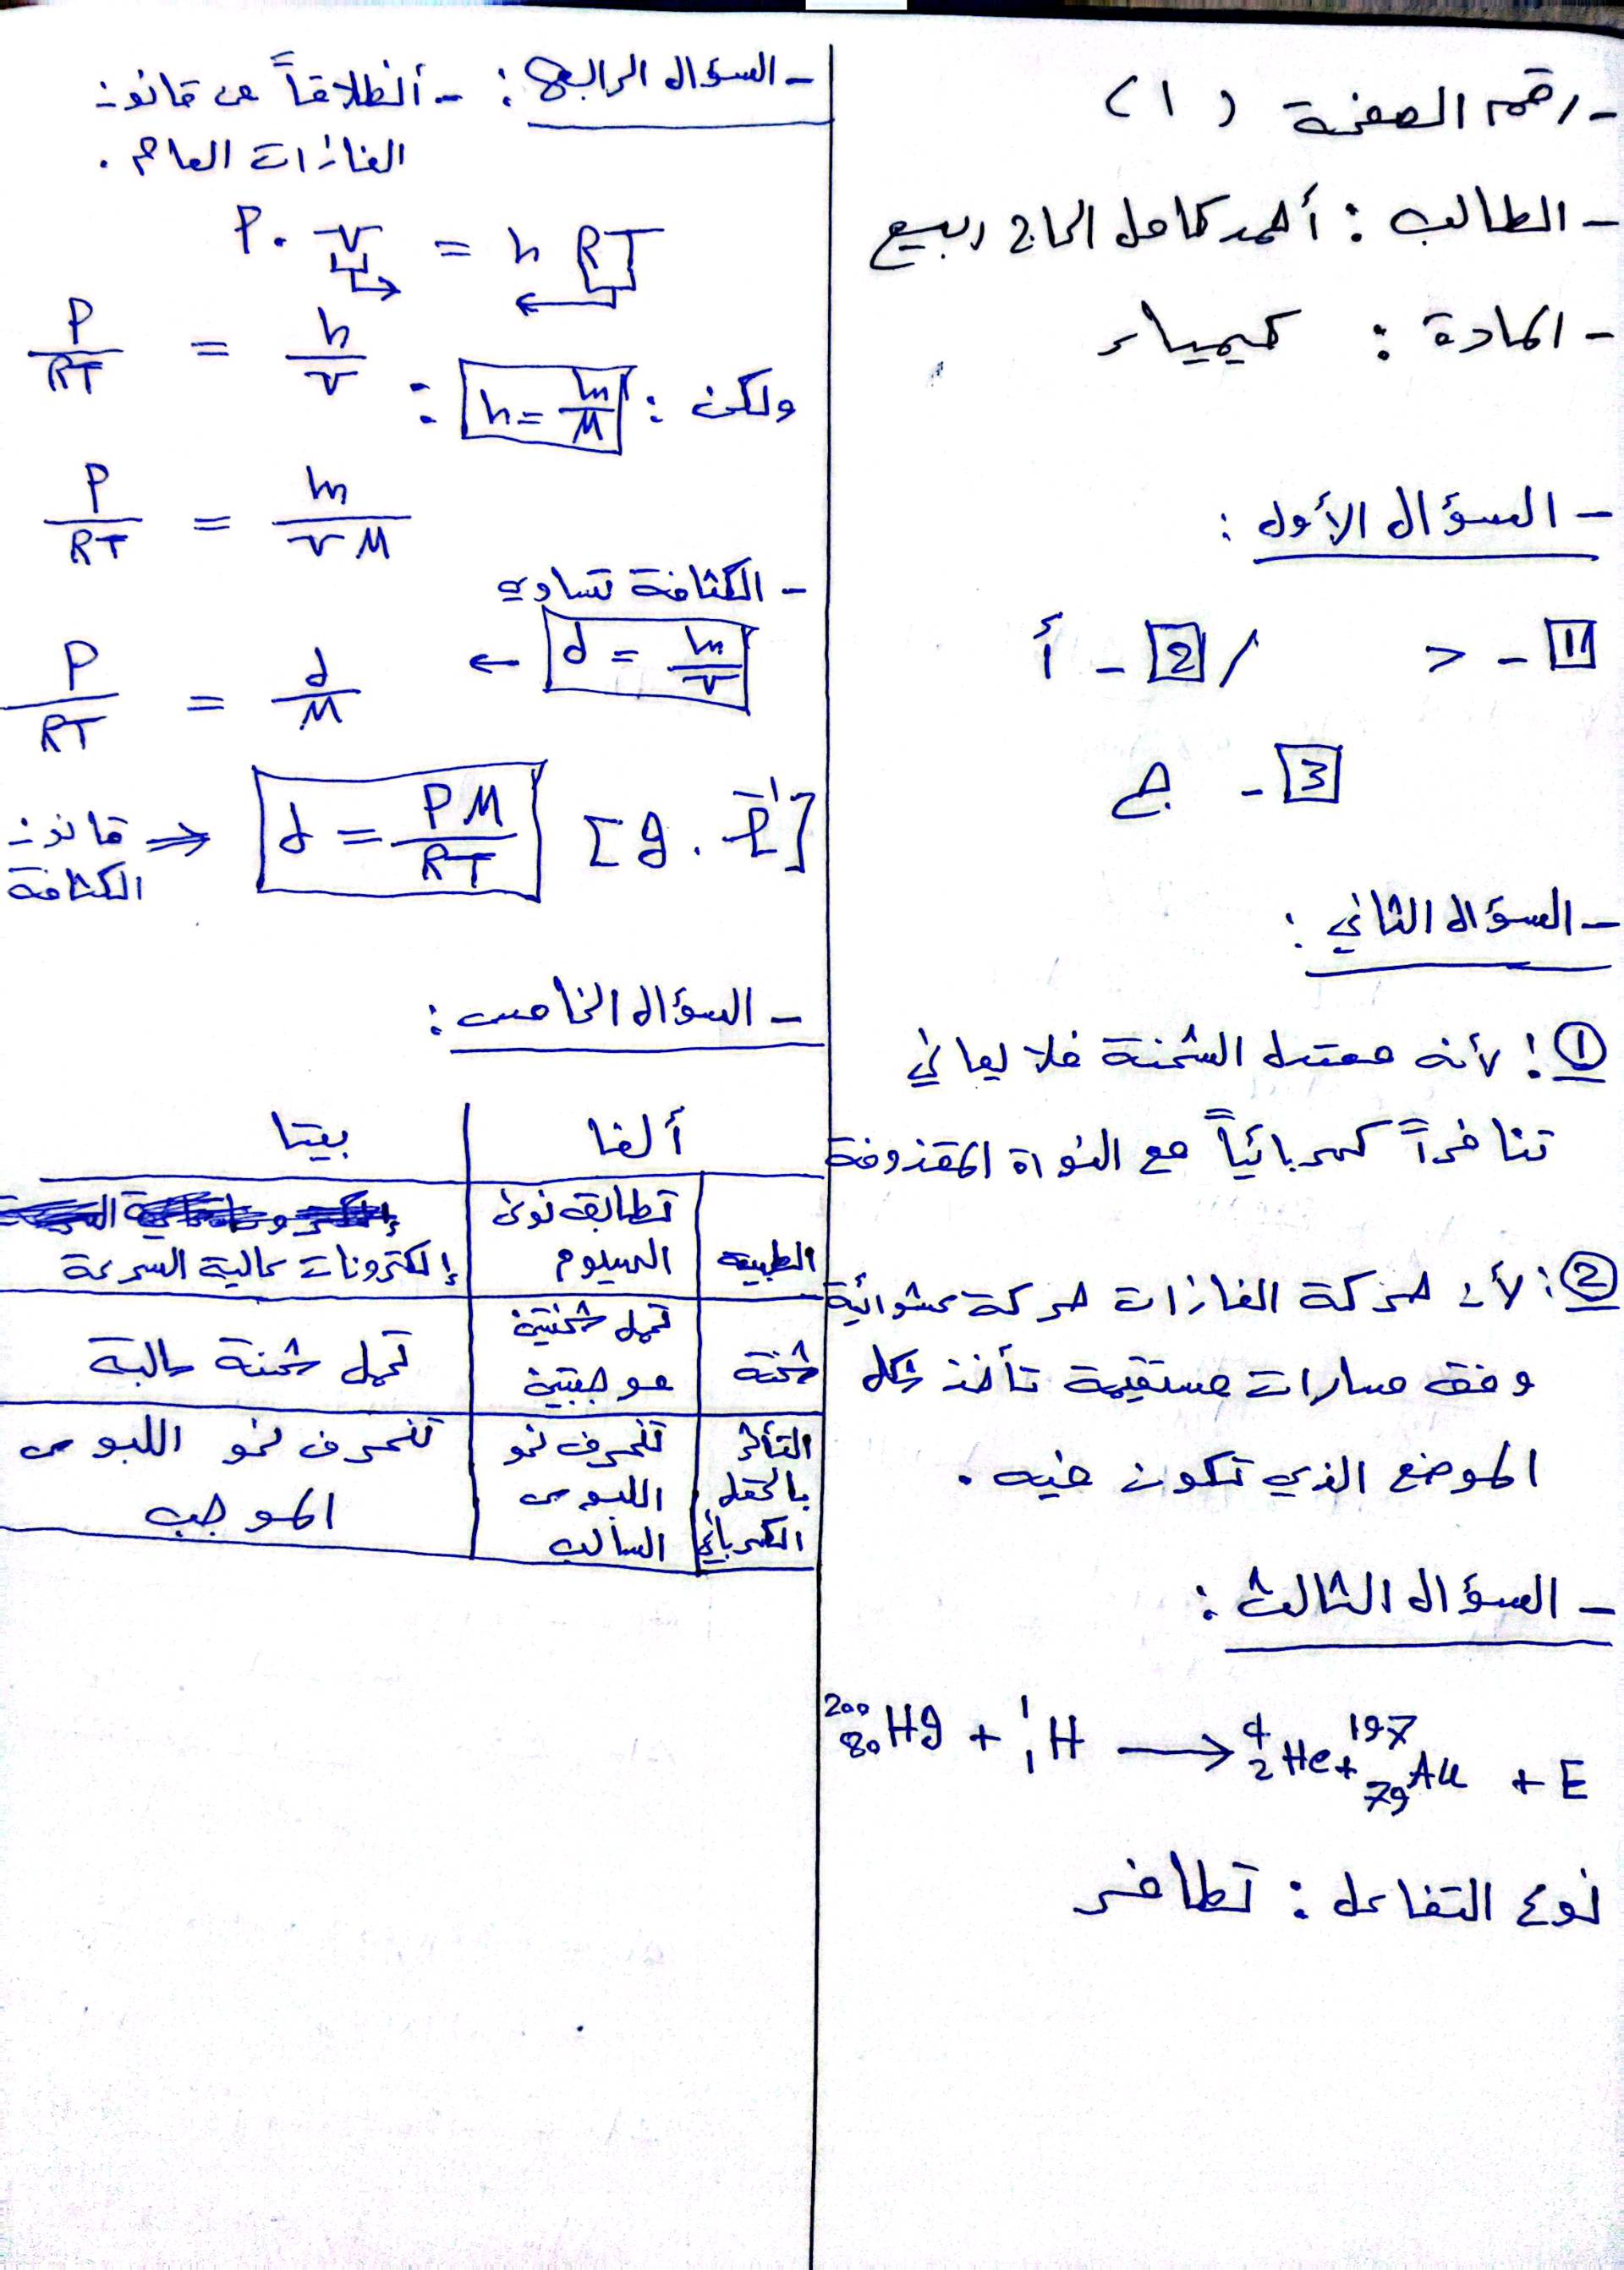 - رقم الصفحة (١)
- الطالب : أحمد كامل الحاج ربيع
- المادة : كيمياء
- السؤال الأول :
1 - د / 2 - أ
3 - ج
- السؤال الثاني :
① : لأنه معتدل الشحنة فلا يعاني
تنافراً كهربائياً مع النواة المقذوفة
② : لأن حركة الغازات حركة عشوائية
وفق مسارات مستقيمة تأخذ شكل
الموضع الذي تكون فيه .
- السؤال الثالث :
²⁰⁰₈₀Hg + ¹₁H → ⁴₂He + ¹⁹⁷₇₉Au + E
نوع التفاعل : تطافر
- السؤال الرابع : - أنطلاقاً من قانون
الغازات العام .
P . V = n RT
P/RT = n/V
ولكن : n = m/M :
P/RT = m/VM
- الكثافة تساوي
d = m/V ←
P/RT = d/M
d = PM/RT [g . L⁻¹]
⇒ قانون
الكثافة
- السؤال الخامس :
ألفا | بيتا
الطبيعة | تطابق نوى الهيليوم | إلكترونات عالية السرعة
شحنة | تحمل شحنتين موجبتين | تحمل شحنة سالبة
التأثر بالحقل الكهربائي | تنحرف نحو اللبوس السالب | تنحرف نحو اللبوس الموجب